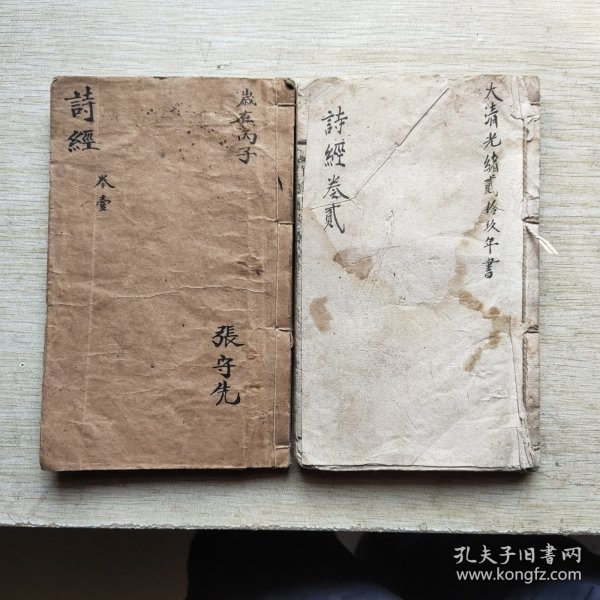 歲在丙子
詩經
卷壹
張守先
大清光緒貳拾玖年書
詩經卷貳
孔夫子旧书网
www.kongfz.com